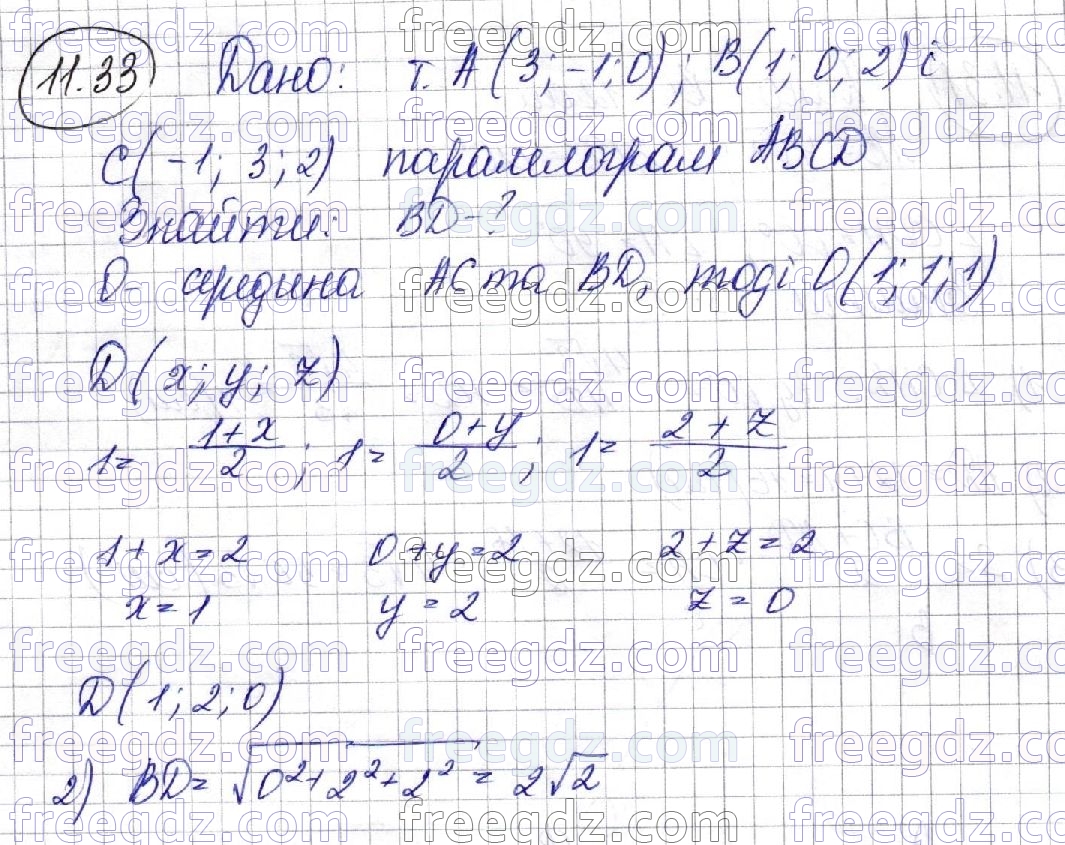 11.33 Дано: т. A(3; -1; 0); B(1; 0; 2) і
C(-1; 3; 2) паралелограм ABCD
Знайти: BD - ?
O - середина AC та BD, тоді O(1; 1; 1)
D(x; y; z)
1 = (1+x)/2; 1 = (0+y)/2; 1 = (2+z)/2
1+x=2 0+y=2 2+z=2
x=1 y=2 z=0
D(1; 2; 0)
2) BD = √(0²+2²+2²) = 2√2
freegdz.com